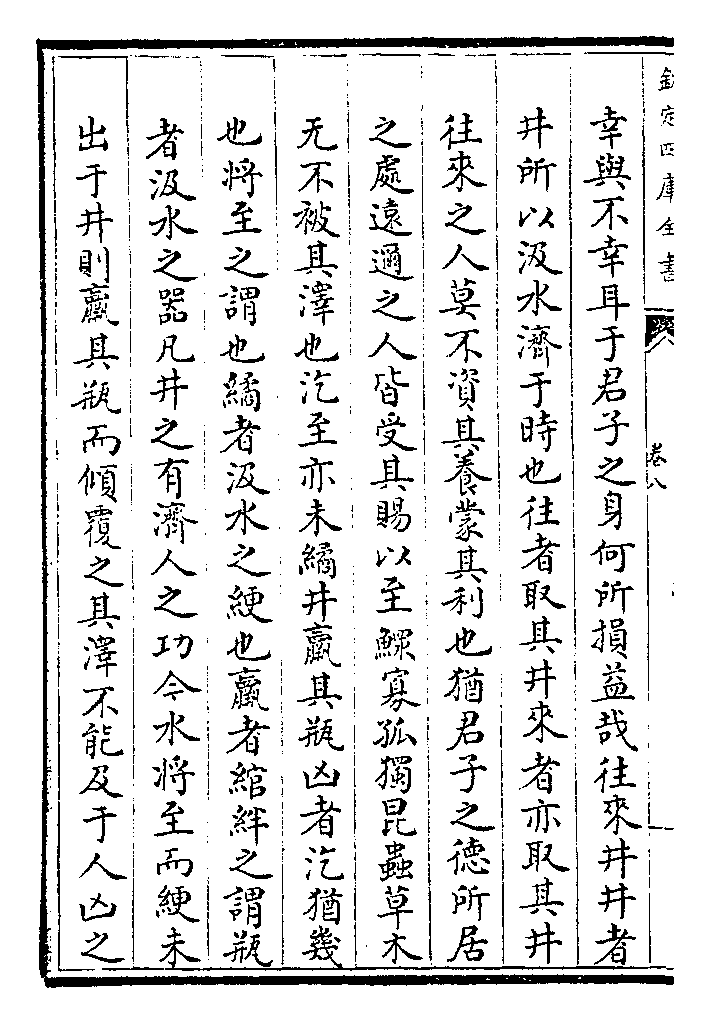 欽定四庫全書
卷八
幸與不幸耳于君子之身何所損益哉往來井井者
井所以汲水濟于時也往者取其井來者亦取其井
往來之人莫不資其養蒙其利也猶君子之德所居
之處遠邇之人皆受其賜以至鰥寡孤獨昆蟲草木
无不被其澤也汔至亦未繘井羸其瓶凶者汔猶幾
也將至之謂也繘者汲水之綆也羸者綰絆之謂瓶
者汲水之器凡井之有濟人之功今水將至而綆未
出于井則羸其瓶而傾覆之其澤不能及于人凶之